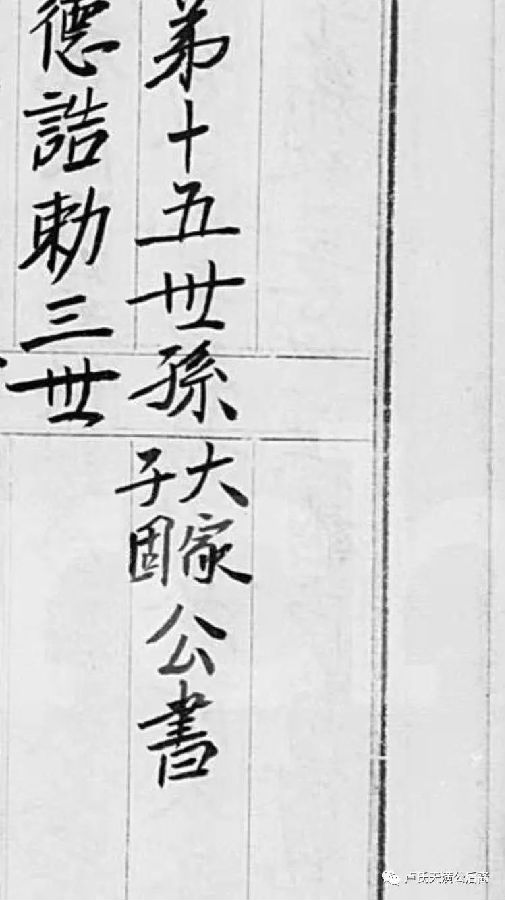 弟十五世孫大家子固公書
德誥勅三世
卢氏天满公后裔